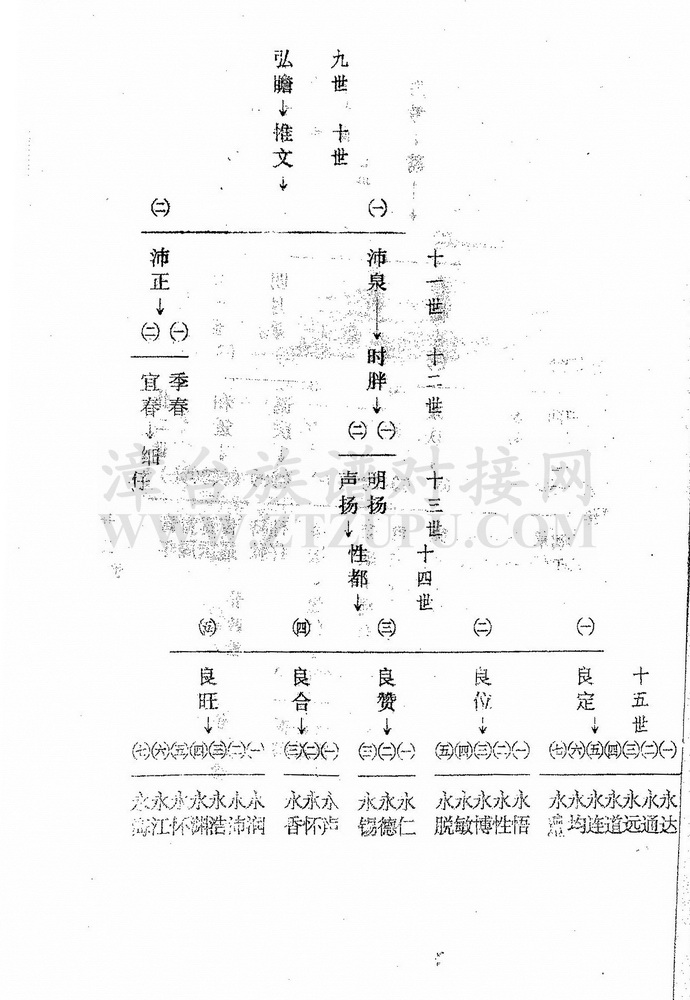 九世 十世
弘瞻→惟文→
㈠ ㈡
十一世 十二世 十三世 十四世
沛泉→时胖→
㈠ ㈡
明扬
声扬→性都→
沛正→
㈠ ㈡
季春
宜春→细仔
漳台族谱对接网
WWW.ZTZUPU.COM
㈠ ㈡ ㈢ ㈣ ㈤
十五世
良定→
良位→
良赞→
良合→
良旺→
㈠㈡㈢㈣㈤㈥㈦
㈠㈡㈢㈣㈤
㈠㈡㈢
㈠㈡㈢
㈠㈡㈢㈣㈤㈥㈦
永达 永通 永远 永道 永连 永均 永
永悟 永性 永博 永敏 永脱
永仁 永德 永锡
永声 永怀 永香
永润 永沛 永浩 永渊 永怀 永江 永海